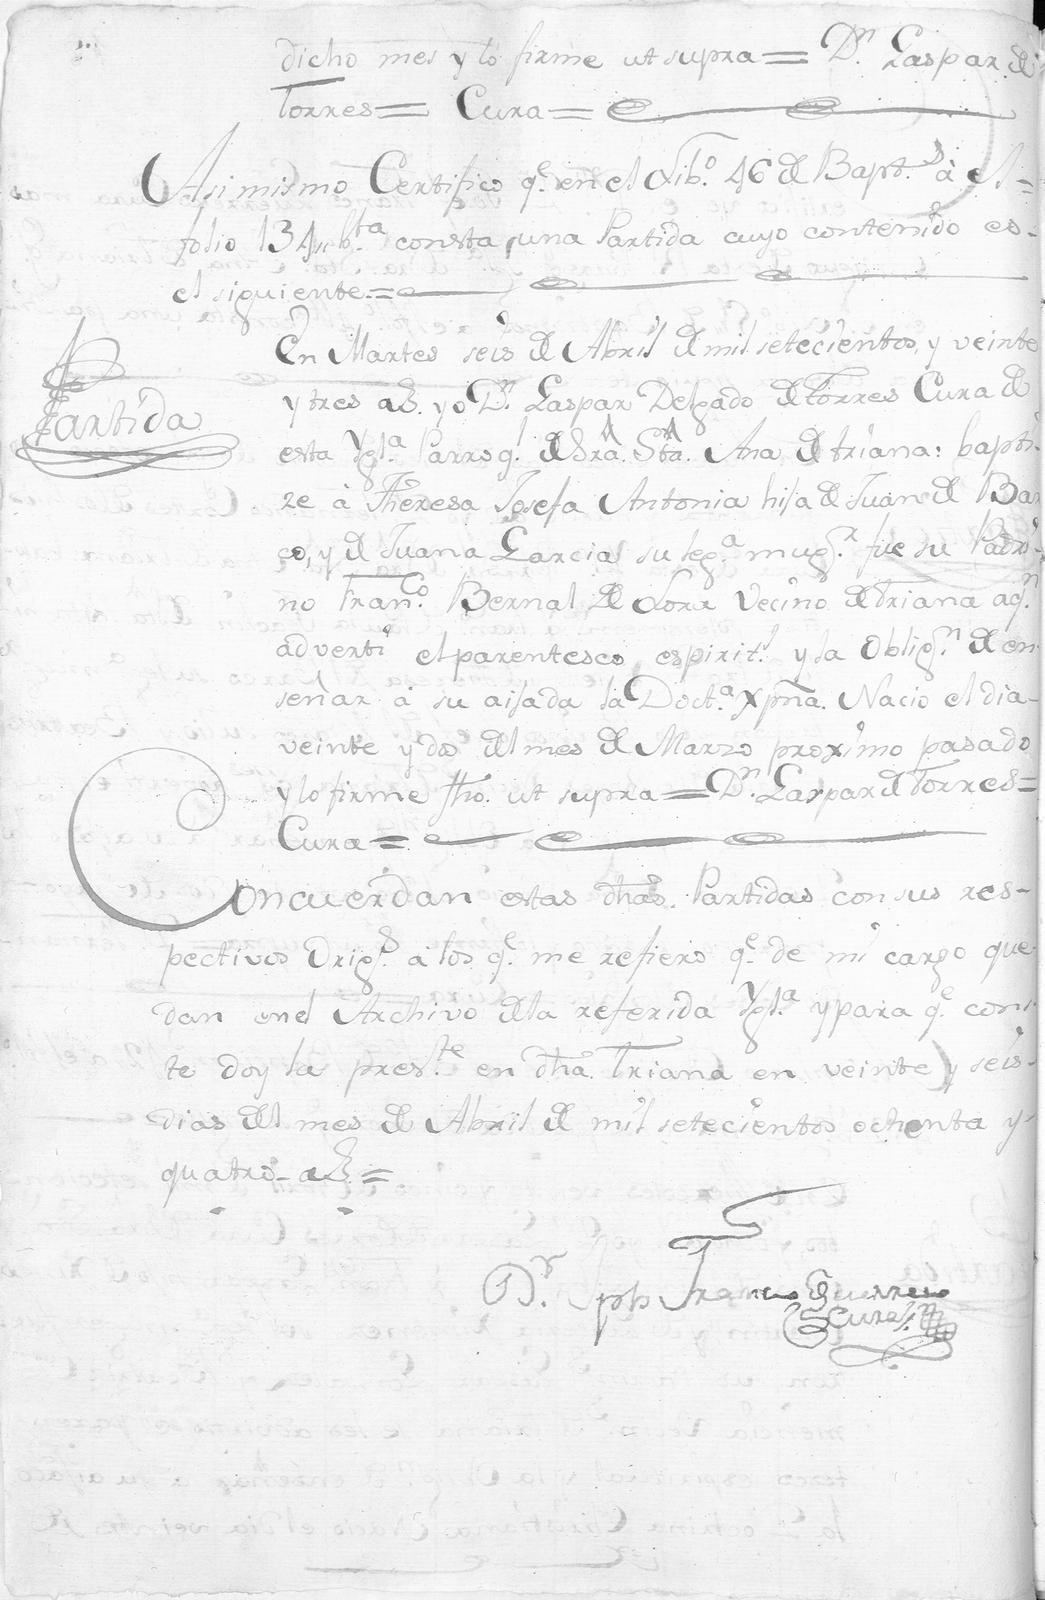 dicho mes y lo firme ut supra = Dn. Gaspar de
Torres = Cura =
Asimismo Certifico qe. en el Libo. 46 de Bapts. à el
folio 134 bta. consta una Partida cuyo contenido es
el siguiente =
Partida
En Martes seis de Abril de mil setecientos, y veinte
y tres as. yo Dn. Gaspar Delgado de Torres Cura de
esta Ygla. Parroql. de Sra. Sta. Ana de triana: bapti
ze à Theresa Josefa Antonia hija de Juan de Bar
co, y de Juana Garcia su lega. mugr. fue su Padri-
no Franco. Bernal de Lora Vecino de Triana aqn.
adverti el parentesco espiritl. y la Obligon. de en
señar à su aijada la Docta. Xpna. Nacio el dia
veinte y dos del mes de Marzo proximo pasado
y lo firme fho. ut supra = Dn. Gaspar de Torres =
Cura =
Concuerdan estas dhas. Partidas con sus res-
pectivos Origs. à los qe. me refiero qe. de mi cargo que
dan en el Archivo de la referida Ygla. y para qe. cons
te doy la preste. en dha. Triana en veinte y seis
dias del mes de Abril de mil setecientos ochenta y
quatro as. =
Dr. Jph Franco Guerrero
Cura